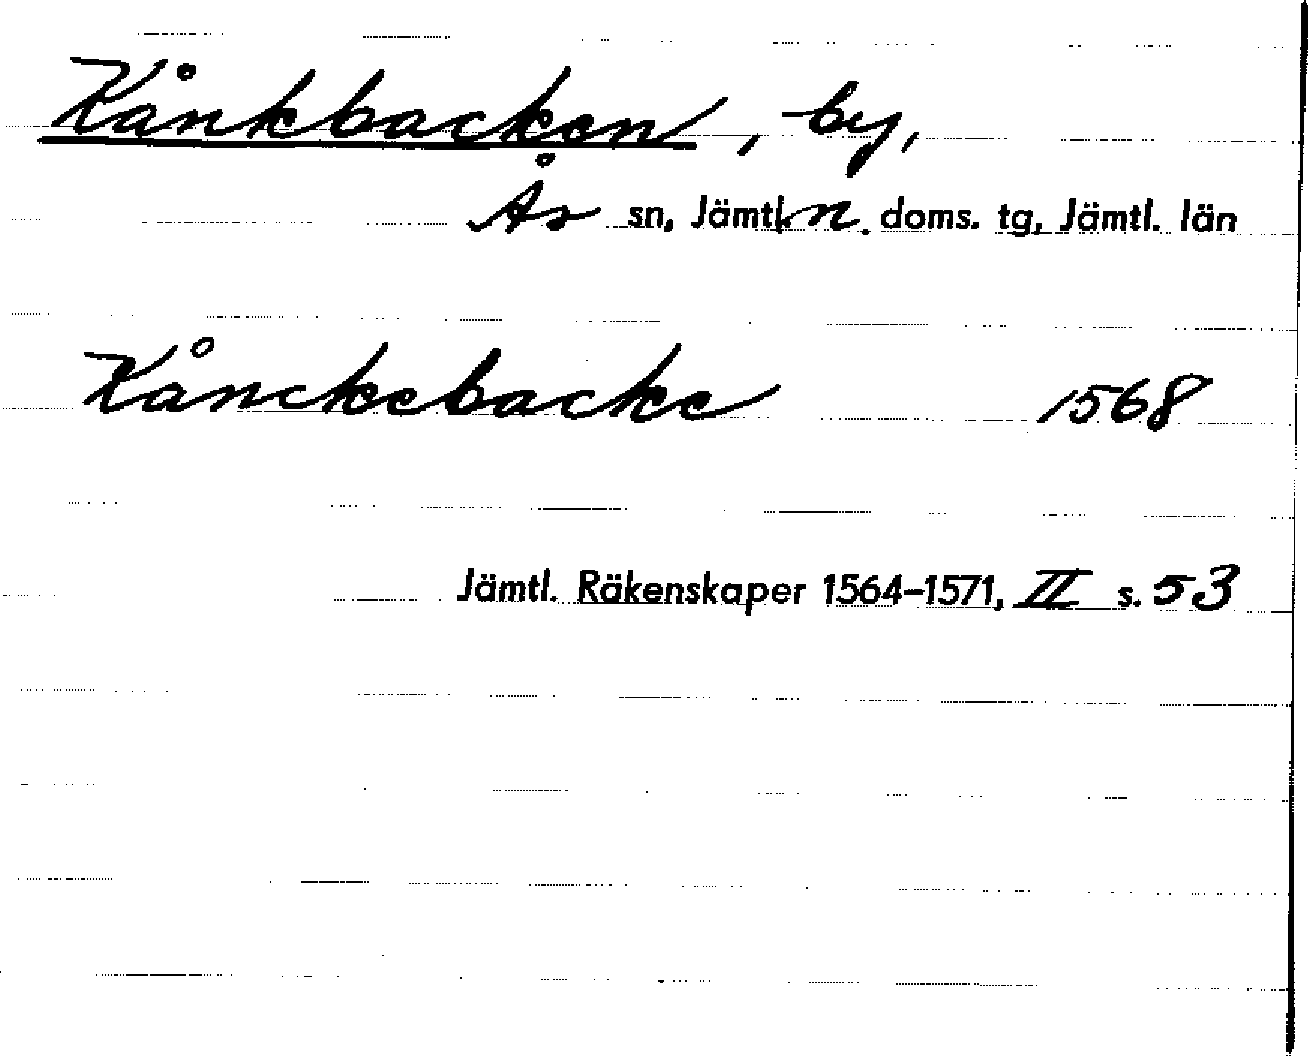 Kånkbacken, by,
Ås sn, Jämtl. n. doms. tg, Jämtl. län
Kånckebacke 1568
Jämtl. Räkenskaper 1564-1571, II s. 53